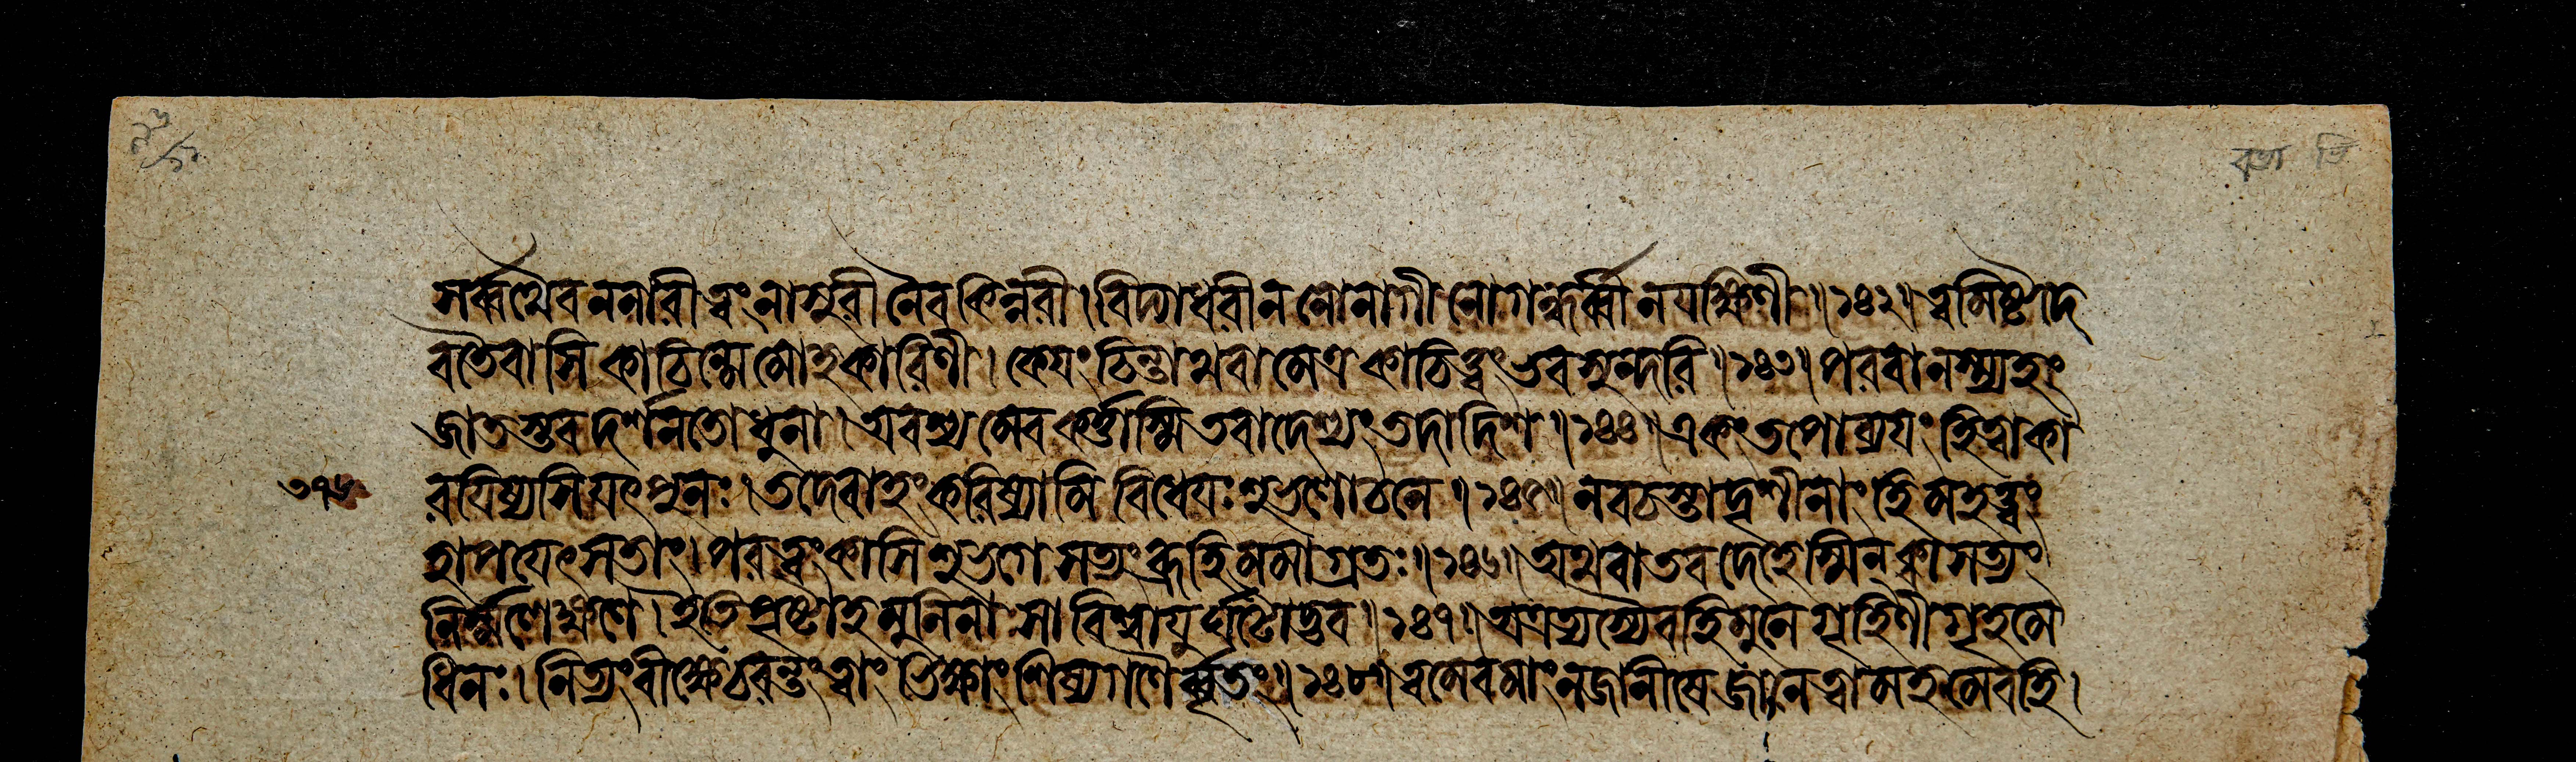 সর্ব্বথৈব ন নারী ত্বং নাসুরী নৈব কিন্নরী । বিদ্যাধরী ন নো নাগী নো গন্ধর্ব্বী ন যক্ষিণী ॥ ১৪২ ॥ ত্বমিষ্টদে
বতৈবাসি কাচিন্মে মোহকারিণী । কেয়ং চিন্তাথবা মেত্র কাচিত্ত্বং ভব সুন্দরি ॥ ১৪৩ ॥ পরবানস্ম্যহং
জাতস্তব দর্শনতোধুনা । অবশ্যমেব কর্ত্তাস্মি তবাদেশ্যং তদাদিশ ॥ ১৪৪ ॥ একং তপোব্যযং হিত্বা কা
রযিষ্যসি যৎ পুনঃ । তদেবাহং করিষ্যামি বিধেযঃ শুভলোচনে ॥ ১৪৫ ॥ ন বচস্তাদৃশীনাং হি মহত্ত্বং
হাপযেৎ সতাং । পরং ত্বং কাসি শুভগে সত্যং ব্রূহি মমাগ্রতঃ ॥ ১৪৬ ॥ অথবা তব দেহেস্মিন্ ক্বাসত্যং
নির্ম্মলেক্ষণে । ইতি পৃষ্টাহ মুনিনা সা বিশ্বাযুর্ঘটোদ্ভব ॥ ১৪৭ ॥ অত্রত্যস্যৈব হি মুনে গৃহিণী গৃহমে
ধিনঃ । নিত্যং বীক্ষে চরন্তং ত্বাং ভিক্ষাং শিষ্যগণৈর্ব্বৃতং ॥ ১৪৮ ॥ ত্বমেব মাং ন জানীষে জানে ত্বামহমেব হি ।